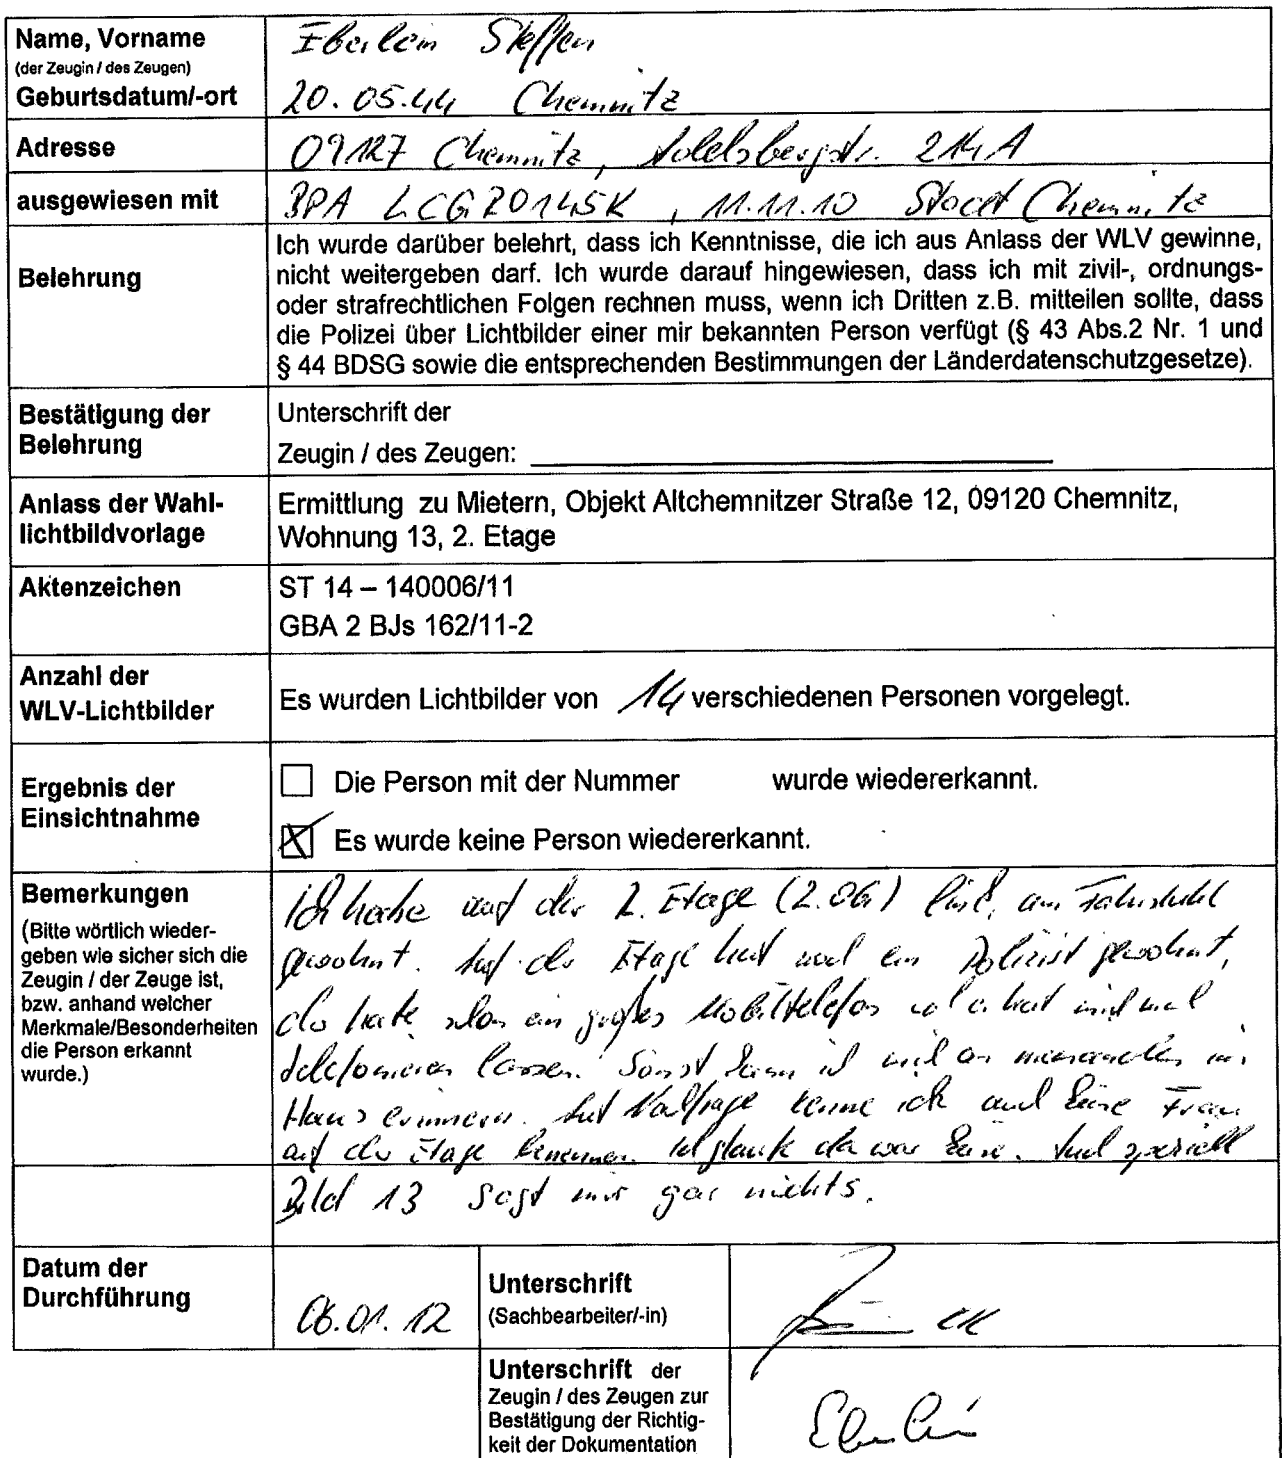 Name, Vorname
(der Zeugin / des Zeugen)
Eberlein Steffen
Geburtsdatum/-ort
20.05.44 Chemnitz
Adresse
09127 Chemnitz, 214A
ausgewiesen mit
BPA LCGZ0145K, 11.11.10 Stadt Chemnitz
Belehrung
Ich wurde darüber belehrt, dass ich Kenntnisse, die ich aus Anlass der WLV gewinne,
nicht weitergeben darf. Ich wurde darauf hingewiesen, dass ich mit zivil-, ordnungs-
oder strafrechtlichen Folgen rechnen muss, wenn ich Dritten z.B. mitteilen sollte, dass
die Polizei über Lichtbilder einer mir bekannten Person verfügt (§ 43 Abs.2 Nr. 1 und
§ 44 BDSG sowie die entsprechenden Bestimmungen der Länderdatenschutzgesetze).
Bestätigung der
Belehrung
Unterschrift der
Zeugin / des Zeugen:
Anlass der Wahl-
lichtbildvorlage
Ermittlung zu Mietern, Objekt Altchemnitzer Straße 12, 09120 Chemnitz,
Wohnung 13, 2. Etage
Aktenzeichen
ST 14 – 140006/11
GBA 2 BJs 162/11-2
Anzahl der
WLV-Lichtbilder
Es wurden Lichtbilder von 14 verschiedenen Personen vorgelegt.
Ergebnis der
Einsichtnahme
Die Person mit der Nummer wurde wiedererkannt.
Es wurde keine Person wiedererkannt.
Bemerkungen
(Bitte wörtlich wieder-
geben wie sicher sich die
Zeugin / der Zeuge ist,
bzw. anhand welcher
Merkmale/Besonderheiten
die Person erkannt
wurde.)
Ich habe auf der 2. Etage (2.OG) am Fahrstuhl
gewohnt. Auf der Etage hat noch ein Polizist gewohnt,
der hatte schon ein großes Mobiltelefon und hat mich mal
telefonieren lassen. Sonst kann ich mich an niemanden im
Haus erinnern. Auf Nachfrage kenne ich auch keine Frau
auf der Etage benennen. Ich glaube da war keine. Auch speziell
Bild 13 sagt mir gar nichts.
Datum der
Durchführung
06.01.12
Unterschrift
(Sachbearbeiter/-in)
Unterschrift der
Zeugin / des Zeugen zur
Bestätigung der Richtig-
keit der Dokumentation
Eberlein